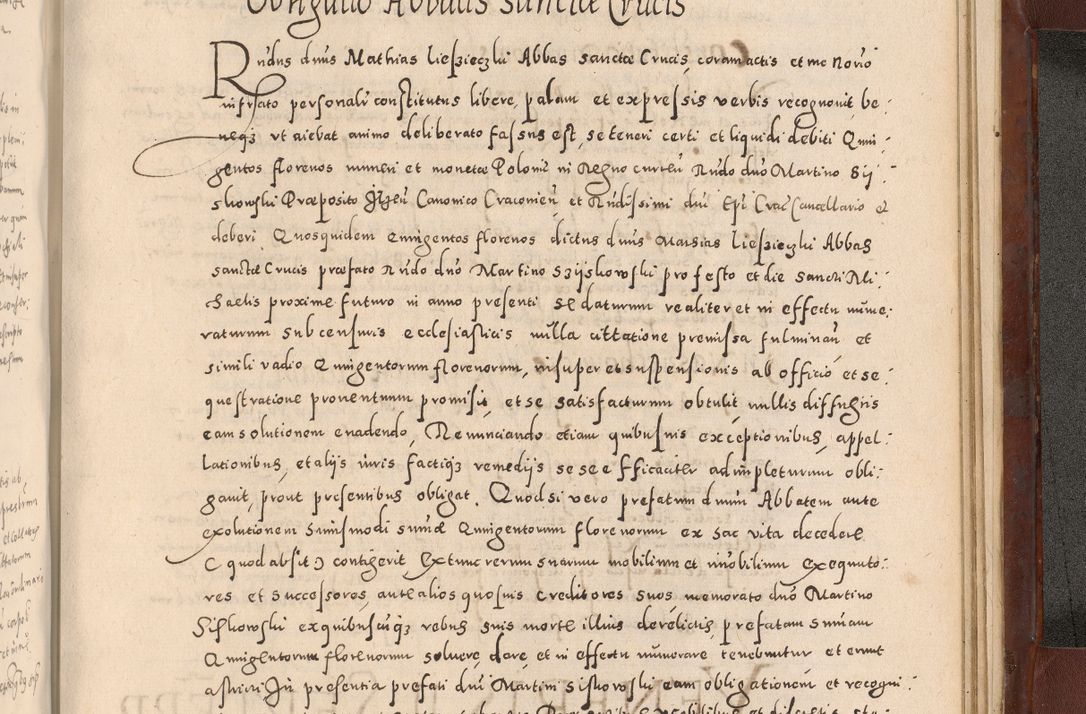 Obligatio Abbatis Sanctæ Crucis
Rndus dnus Mathias Lieszieczki Abbas Sanctæ Crucis, coram actis et me Norio
infrasto personalr constitutus libere, palam et expressis verbis recognouit be
neqz vt aiebat animo deliberato fassus est, se teneri certi et liquidi debiti Quin
gentos florenos numeri et monetæ Poloniæ in Regno curren Rndo dno Martino Sij
skowski Præposito Canonico Cracouien, et Rndissimi dni Epi Crac Cancellario et
deberi. Quosquidem Quingentos florenos dictus dnus Mathias Lieszieczki Abbas
sanctæ Crucis præfato Rndo dno Martino Szijskowski pro festo et die Sancti Mi
chaelis proxime futuro in anno presenti se daturum realiter et in effectu nume
raturum sub censuris ecclesiasticis nulla cittatione premissa fulminan et
simili vadio Quingentorum florenorum, insuper et suspensionis ab officio et se
questratione prouentuum promisit, et se satisfacturum obtulit nullis diffugiis
eam solutionem euadendo, Renunciando etiam quibusuis exceptionibus, appel
lationibus, et alijs iuris factiqz remedijs sese efficaciter adimpleturum obli
gauit, prout presentibus obligat. Quod si vero prefatum dnum Abbatem ante
exolutionem huiusmodi summæ Quingentorum florenorum ex hac vita decedere
( quod absit ) contigerit, Extunc rerum suarum mobilium et imobilium exequuto
res et successores, aut alios quosuis creditores suos memorato dno Martino
Siskowski ex quibuscuqz rebus suis morte illius derelictis prefatam summam
Quingentorum florenorum soluere, dare, et in effectu numerare tenebuntur et erunt
astricti In presentia prefati dni Martini Siskowski eam obligationem et recogni